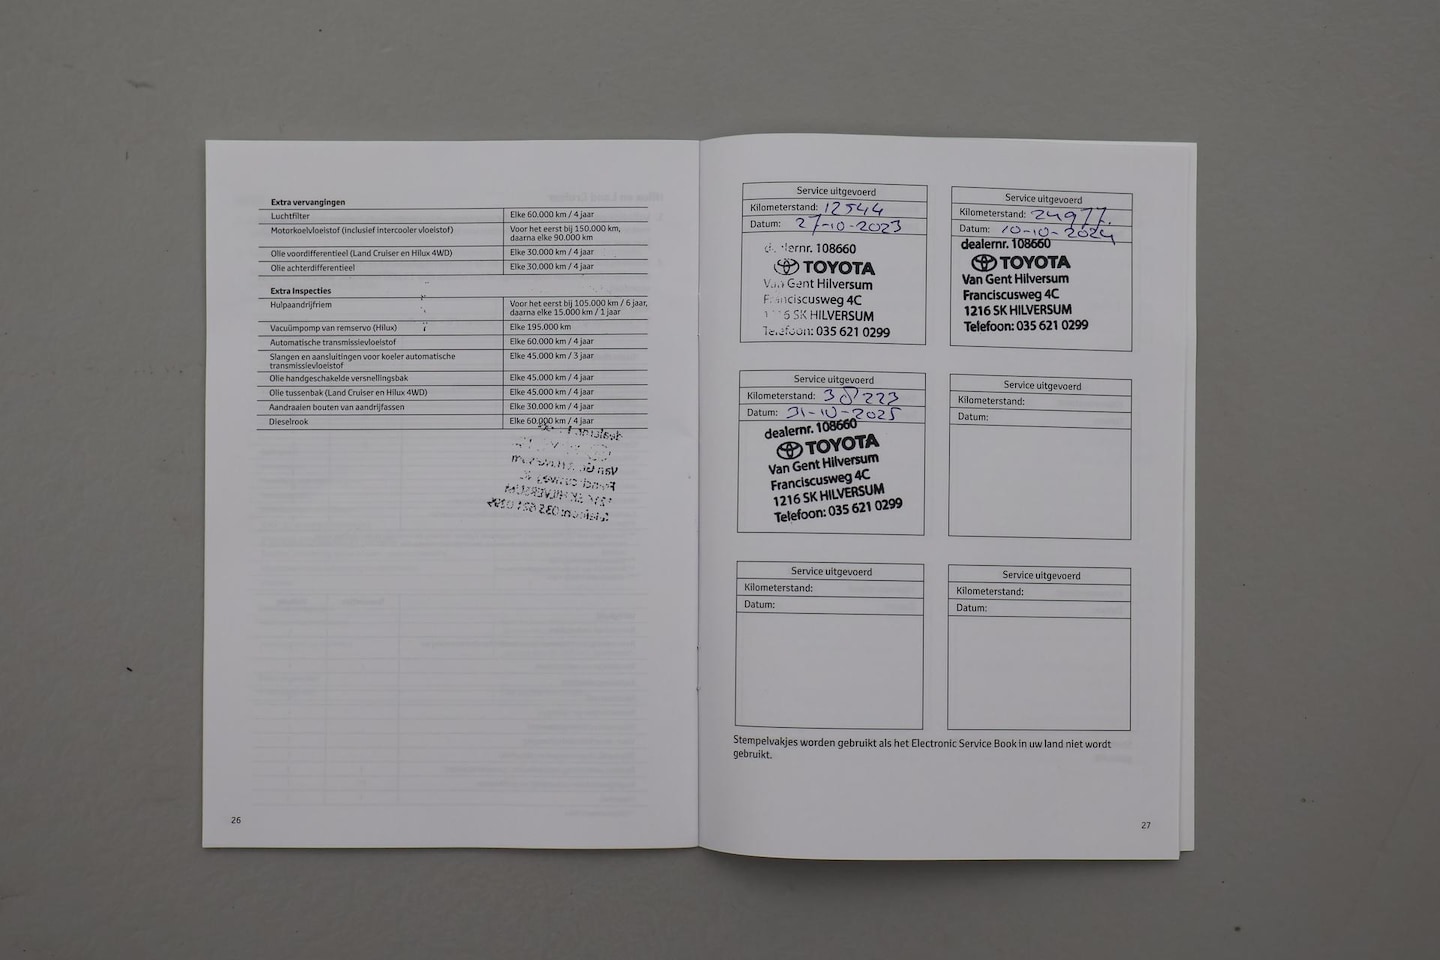 Extra vervangingen
Luchtfilter Elke 60.000 km / 4 jaar
Motorkoelvloeistof (inclusief intercooler vloeistof) Voor het eerst bij 150.000 km,
daarna elke 90.000 km
Olie voordifferentieel (Land Cruiser en Hilux 4WD) Elke 30.000 km / 4 jaar
Olie achterdifferentieel Elke 30.000 km / 4 jaar
Extra Inspecties
Hulpaandrijfriem Voor het eerst bij 105.000 km / 6 jaar,
daarna elke 15.000 km / 1 jaar
Vacuümpomp van remservo (Hilux) Elke 195.000 km
Automatische transmissievloeistof Elke 60.000 km / 4 jaar
Slangen en aansluitingen voor koeler automatische Elke 45.000 km / 3 jaar
transmissievloeistof
Olie handgeschakelde versnellingsbak Elke 45.000 km / 4 jaar
Olie tussenbak (Land Cruiser en Hilux 4WD) Elke 45.000 km / 4 jaar
Aandraaien bouten van aandrijfassen Elke 30.000 km / 4 jaar
Dieselrook Elke 60.000 km / 4 jaar
26
Service uitgevoerd
Kilometerstand: 12544
Datum: 27-10-2023
dealernr. 108660
TOYOTA
Van Gent Hilversum
Franciscusweg 4C
1216 SK HILVERSUM
Telefoon: 035 621 0299
Service uitgevoerd
Kilometerstand: 24977.
Datum: 10-10-2024
dealernr. 108660
TOYOTA
Van Gent Hilversum
Franciscusweg 4C
1216 SK HILVERSUM
Telefoon: 035 621 0299
Service uitgevoerd
Kilometerstand: 38223
Datum: 31-10-2025
dealernr. 108660
TOYOTA
Van Gent Hilversum
Franciscusweg 4C
1216 SK HILVERSUM
Telefoon: 035 621 0299
Service uitgevoerd
Kilometerstand:
Datum:
Service uitgevoerd
Kilometerstand:
Datum:
Service uitgevoerd
Kilometerstand:
Datum:
Stempelvakjes worden gebruikt als het Electronic Service Book in uw land niet wordt
gebruikt.
27